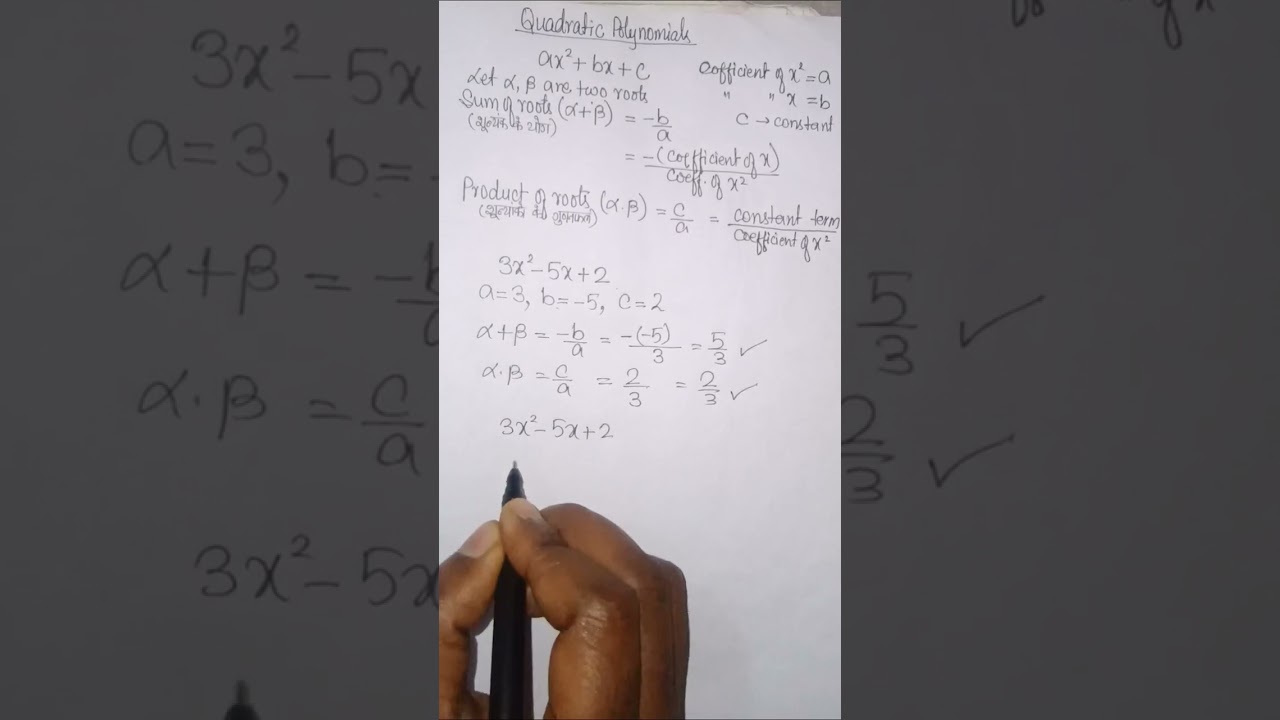 Quadratic Polynomials
ax² + bx + c
Cofficient of x² = a
Let α, β are two roots
" " x = b
Sum of roots (α+β) = -b/a
c → constant
(शून्यक के योग)
= -(coefficient of x)/coeff. of x²
Product of roots (α.β) = c/a = constant term/coefficient of x²
3x² - 5x + 2
a = 3, b = -5, c = 2
α+β = -b/a = -(-5)/3 = 5/3 ✓
α.β = c/a = 2/3 = 2/3 ✓
3x² - 5x + 2